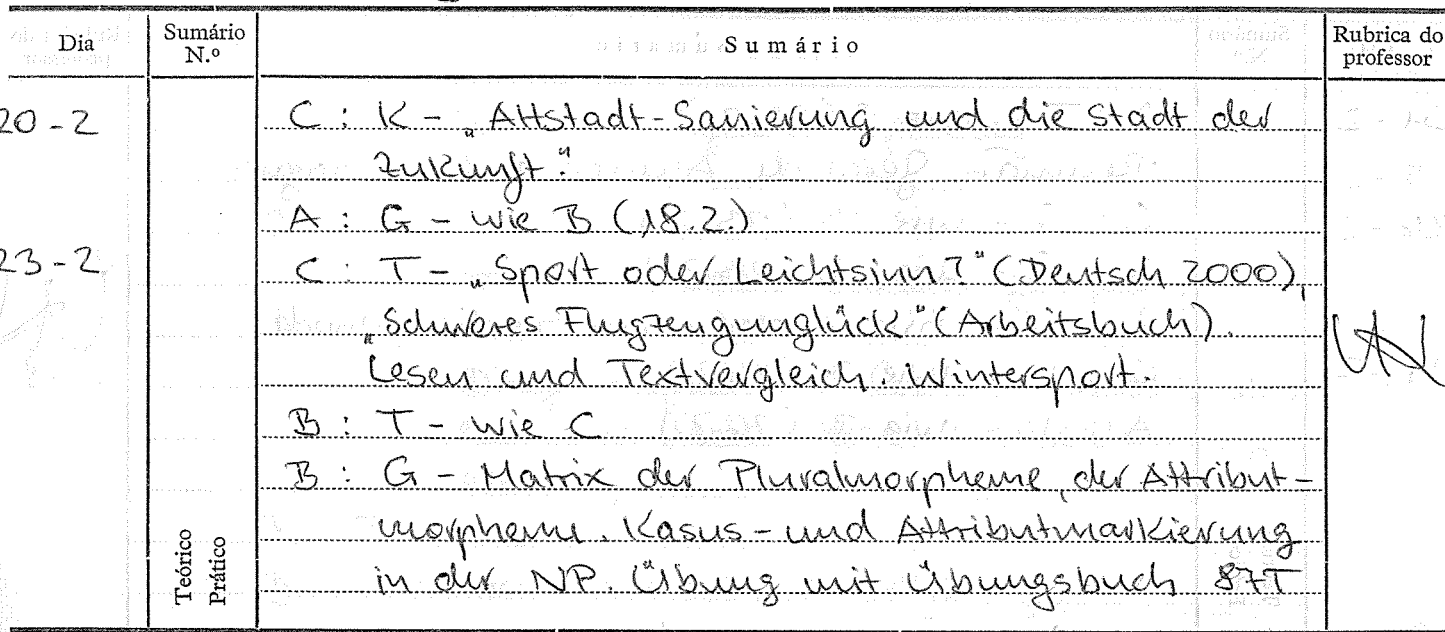 Dia Sumário N.º Sumário Rubrica do professor
20-2 C : K - „Altstadt-Sanierung und die Stadt der
Zukunft."
A : G - wie B (18.2.)
23-2 C : T - „Sport oder Leichtsinn?" (Deutsch 2000),
„Schweres Flugzeugunglück" (Arbeitsbuch).
Lesen und Textvergleich. Wintersport.
B : T - wie C
B : G - Matrix der Pluralmorpheme, der Attribut-
morpheme. Kasus- und Attributmarkierung
in der NP. Übung mit Übungsbuch 87T
Teórico
Prático